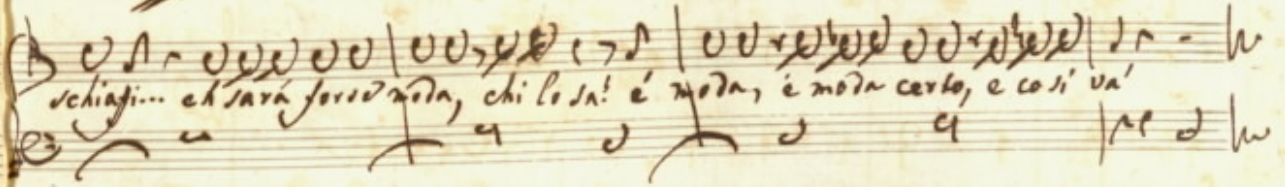 schiafi... eh sará forse moda, chi lo sa! é moda, é moda certo, e così vá